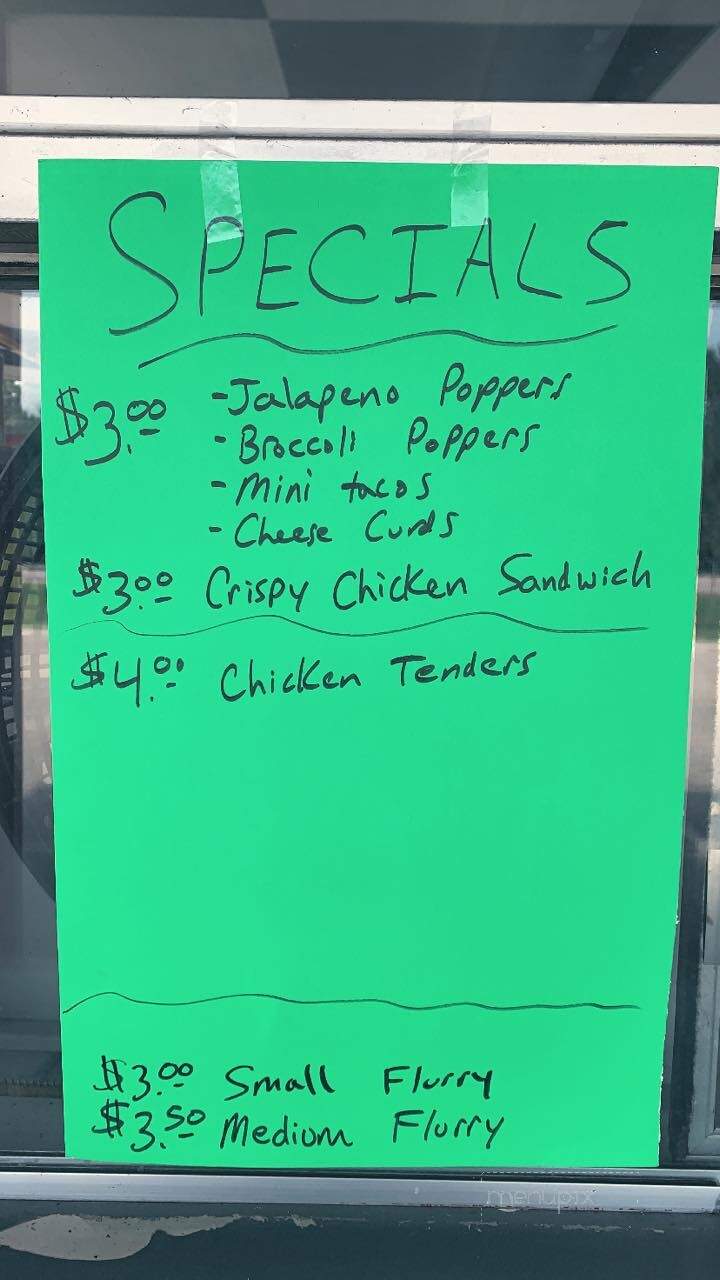 SPECIALS
$3.00 -Jalapeno Poppers
-Broccoli Poppers
-Mini tacos
-Cheese Curds
$3.00 Crispy Chicken Sandwich
$4.00 Chicken Tenders
$3.00 Small Flurry
$3.50 Medium Flurry
menupix